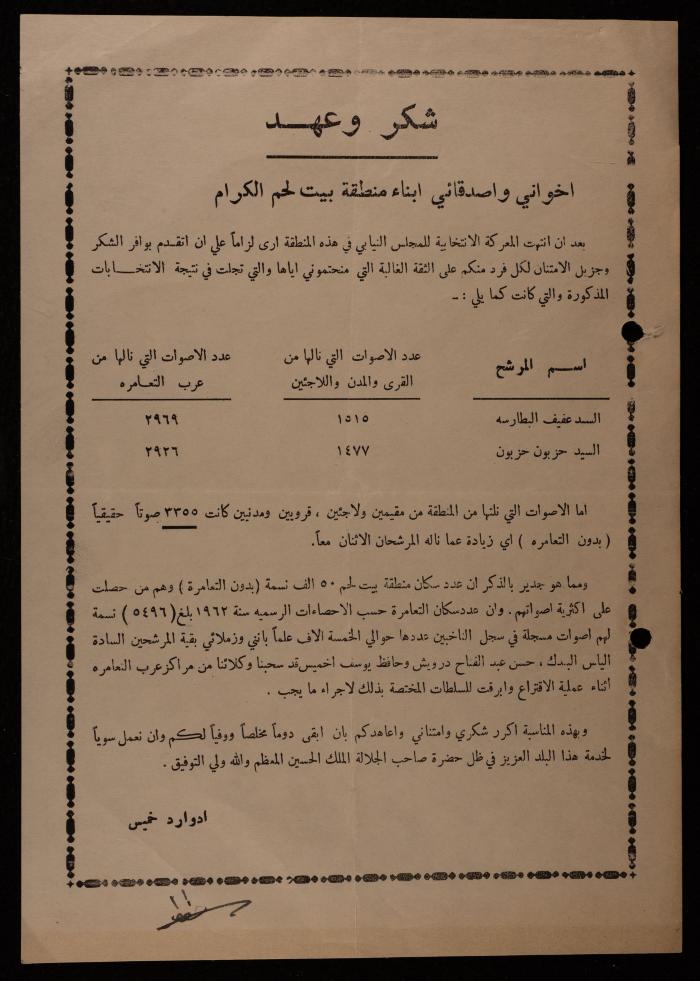 شكر وعهد
اخواني واصدقائي ابناء منطقة بيت لحم الكرام
بعد ان انتهت المعركة الانتخابية للمجلس النيابي في هذه المنطقة ارى لزاماً علي ان اتقدم بوافر الشكر
وجزيل الامتنان لكل فرد منكم على الثقة الغالية التي منحتموني اياها والتي تجلت في نتيجة الانتخابات
المذكورة والتي كانت كما يلي : ــ
اسم المرشح
عدد الاصوات التي نالها من
القرى والمدن واللاجئين
عدد الاصوات التي نالها من
عرب التعامره
السيد عفيف البطارسه ١٥١٥ ٢٩٦٩
السيد حزبون حزبون ١٤٧٧ ٢٩٢٦
اما الاصوات التي نلتها من المنطقة من مقيمين ولاجئين ، قرويين ومدنيين كانت ٣٣٥٥ صوتاً حقيقياً
( بدون التعامره ) اي زيادة عما ناله المرشحان الاثنان معاً.
ومما هو جدير بالذكر ان عدد سكان منطقة بيت لحم ٥٠ الف نسمة (بدون التعامرة ) وهم من حصلت
على اكثرية اصواتهم . وان عددسكان التعامرة حسب الاحصاءات الرسميه سنة ١٩٦٢ بلغ ( ٥٤٩٦ ) نسمة
لهم اصوات مسجلة في سجل الناخبين عددها حوالي الخمسة الاف علماً بانني وزملائي بقية المرشحين السادة
الياس البندك ، حسن عبد الفتاح درويش وحافظ يوسف اخميس قد سحبنا وكلائنا من مراكز عرب التعامره
أثناء عملية الاقتراع وابرقت للسلطات المختصة بذلك لاجراء ما يجب .
وبهذه المناسبة اكرر شكري وامتناني واعاهدكم بان ابقى دوماً مخلصاً ووفياً لكم وان نعمل سوياً
لخدمة هذا البلد العزيز في ظل حضرة صاحب الجلالة الملك الحسين المعظم والله ولي التوفيق .
ادوارد خميس